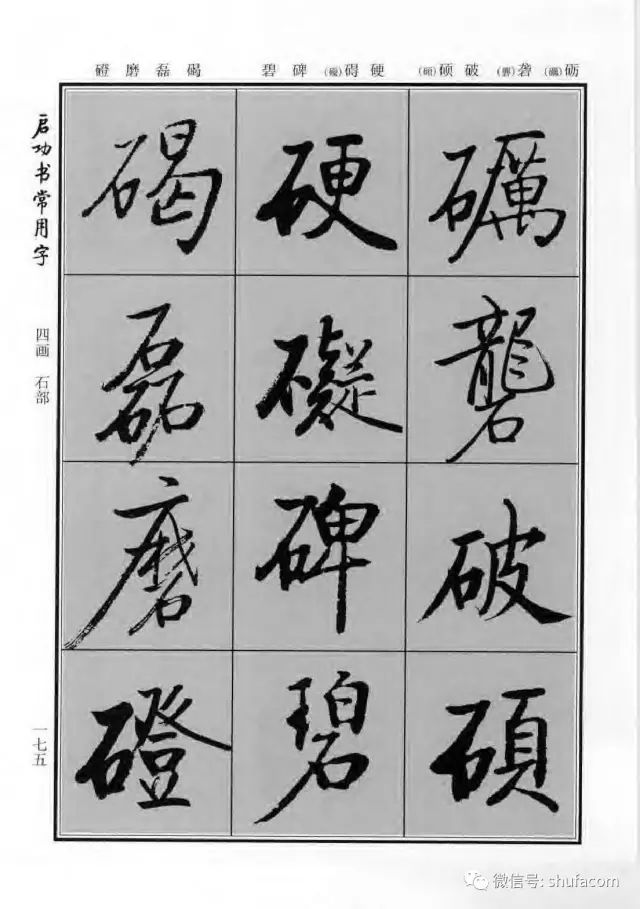 砺(礪)砻(礱)破硕(碩)
硬碍(礙)碑碧
碣磊磨磴
启功书常用字
四画 石部
一七五
礪
礱
破
碩
硬
礙
碑
碧
碣
磊
磨
磴
微信号: shufacom